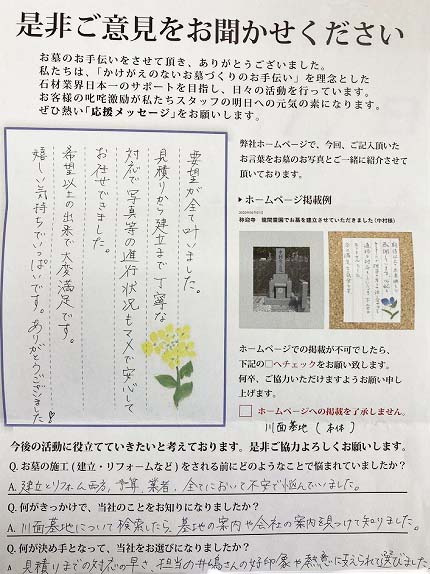 是非ご意見をお聞かせください
お墓のお手伝いをさせて頂き、ありがとうございました。
私たちは、「かけがえのないお墓づくりのお手伝い」を理念とした
石材業界日本一のサポートを目指し、日々の活動を行っています。
お客様の叱咤激励が私たちスタッフの明日への元気の素になります。
ぜひ熱い「応援メッセージ」をお願いします。
要望が全て叶いました。
見積りから建立まで丁寧な
対応で写真等の進行状況もマメで安心して
お任せできました。
希望以上の出来で大変満足です。
嬉しい気持ちでいっぱいです。ありがとうございました
弊社ホームページで、今回、ご記入頂いた
お言葉をお墓のお写真とご一緒に紹介させて
頂いております。
▶ホームページ掲載例
龍間霊園でお墓を建立させていただきました(中村様)
ホームページでの掲載が不可でしたら、
下記の□へチェックをお願い致します。
何卒、ご協力いただけますようお願い申し
上げます。
□ ホームページへの掲載を了承しません。
川面墓地(本体)
今後の活動に役立てていきたいと考えております。是非ご協力よろしくお願いします。
Q. お墓の施工(建立・リフォームなど)をされる前にどのようなことで悩まれていましたか?
A. 建立とリフォーム両方、予算、業者、全てにおいて不安で悩んでいました。
Q. 何がきっかけで、当社のことをお知りになりましたか?
A. 川面墓地について検索したら、墓地の案内や会社の案内を見つけて知りました。
Q. 何が決め手となって、当社をお選びになりましたか?
A. 見積りまでの対応の早さ、担当の井嶋さんの好印象や熱意に支えられて選びました